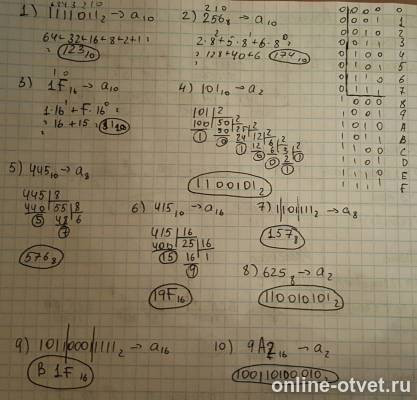 1) 1111011₂ → a₁₀
64+32+16+8+2+1 =
= 123₁₀
2) 256₈ → a₁₀
2·8²+5·8¹+6·8⁰ =
= 128+40+6 = 174₁₀
3) 1F₁₆ → a₁₀
1·16¹+F·16⁰ =
= 16+15 = 31₁₀
4) 101₁₀ → a₂
1100101₂
5) 445₁₀ → a₈
445 | 8
440 | 55 | 8
5 48 6
7
576₈
6) 415₁₀ → a₁₆
415 | 16
400 | 25 | 16
15 16 1
9
19F₁₆
7) 1101111₂ → a₈
157₈
8) 625₈ → a₂
110010101₂
9) 101100011111₂ → a₁₆
B1F₁₆
10) 9A2₁₆ → a₂
100110100010₂
0 0 0 0 0
0 0 0 1 1
0 0 1 0 2
0 0 1 1 3
0 1 0 0 4
0 1 0 1 5
0 1 1 0 6
0 1 1 1 7
1 0 0 0 8
1 0 0 1 9
1 0 1 0 A
1 0 1 1 B
1 1 0 0 C
1 1 0 1 D
1 1 1 0 E
1 1 1 1 F
online-otvet.ru